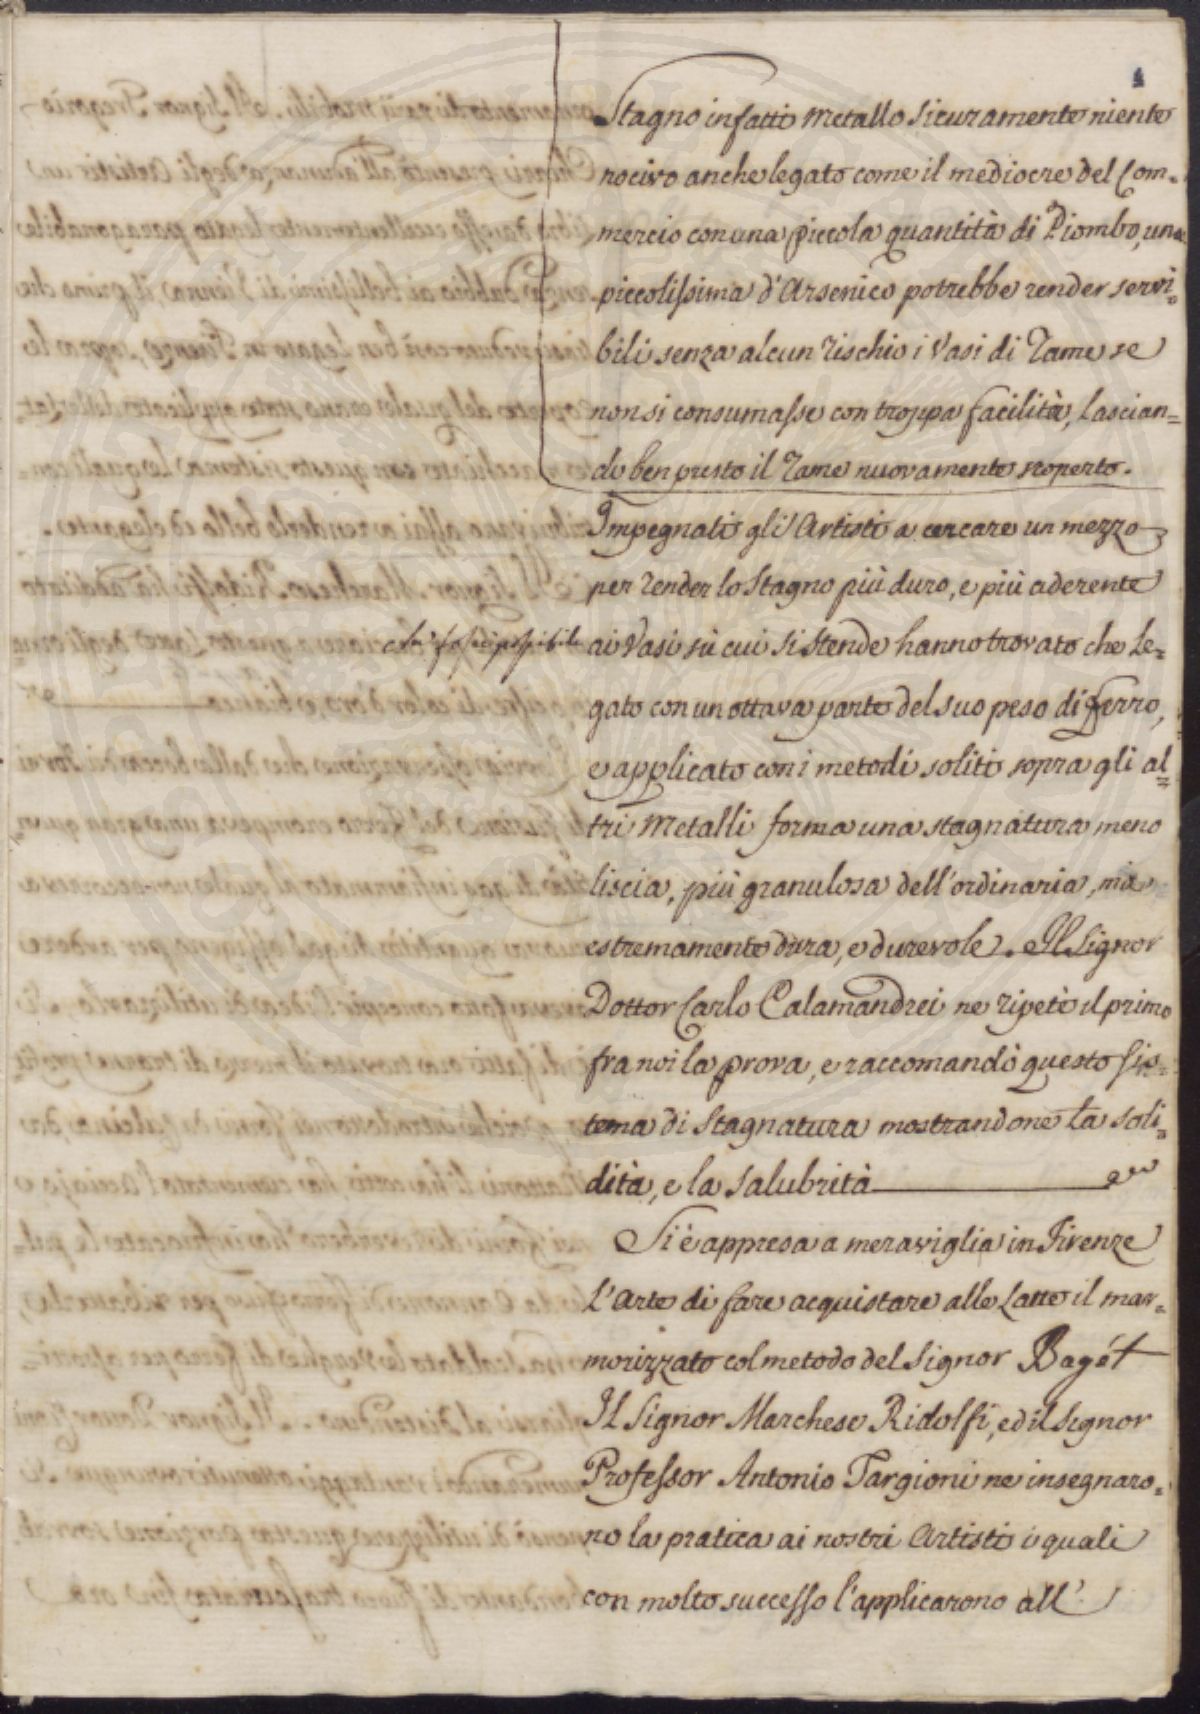 Stagno infatti Metallo sicuramente niente
nocivo anche legato come il mediocre del Com-
mercio con una piccola quantità di Piombo, una
piccolissima d'Arsenico potrebbe render servi-
bili senza alcun rischio i Vasi di Rame se
non si consumasse con troppa facilità, lascian-
do ben presto il Rame nuovamente scoperto.
Impegnati gli Artisti a cercare un mezzo
per render lo Stagno più duro, e più aderente
ai Vasi su cui si stende hanno trovato che le-
gato con un ottava parte del suo peso di ferro,
e applicato con i metodi soliti sopra gli al-
tri Metalli forma una stagnatura meno
liscia, più granulosa dell'ordinaria, ma
estremamente dura, e durevole. Il Signor
Dottor Carlo Calamandrei ne ripetè il primo
fra noi la prova, e raccomandò questo sis-
tema di Stagnatura mostrandone la soli-
dità, e la salubrità
Si è appresa a meraviglia in Firenze
l'Arte di fare acquistare alle Latte il mar-
morizzato col metodo del Signor Bagét
Il Signor Marchese Ridolfi, ed il Signor
Professor Antonio Targioni ne insegnaro-
no la pratica ai nostri Artisti i quali
con molto successo l'applicarono all'